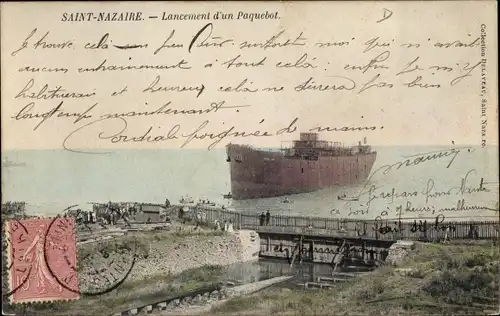 SAINT-NAZAIRE. — Lancement d'un Paquebot.
D
Je trouve cela un peu dur surtout moi qui n'avait
aucun entrainement à tout cela : enfin je m'y
habituerai et heureux cela ne durera pas bien
longtemps maintenant.
Cordiale poignée de mains.
Maurice
Je repars pour Nantes
ce soir à 7 heures malheureu
Collection DELAVEAU, Saint-Nazaire